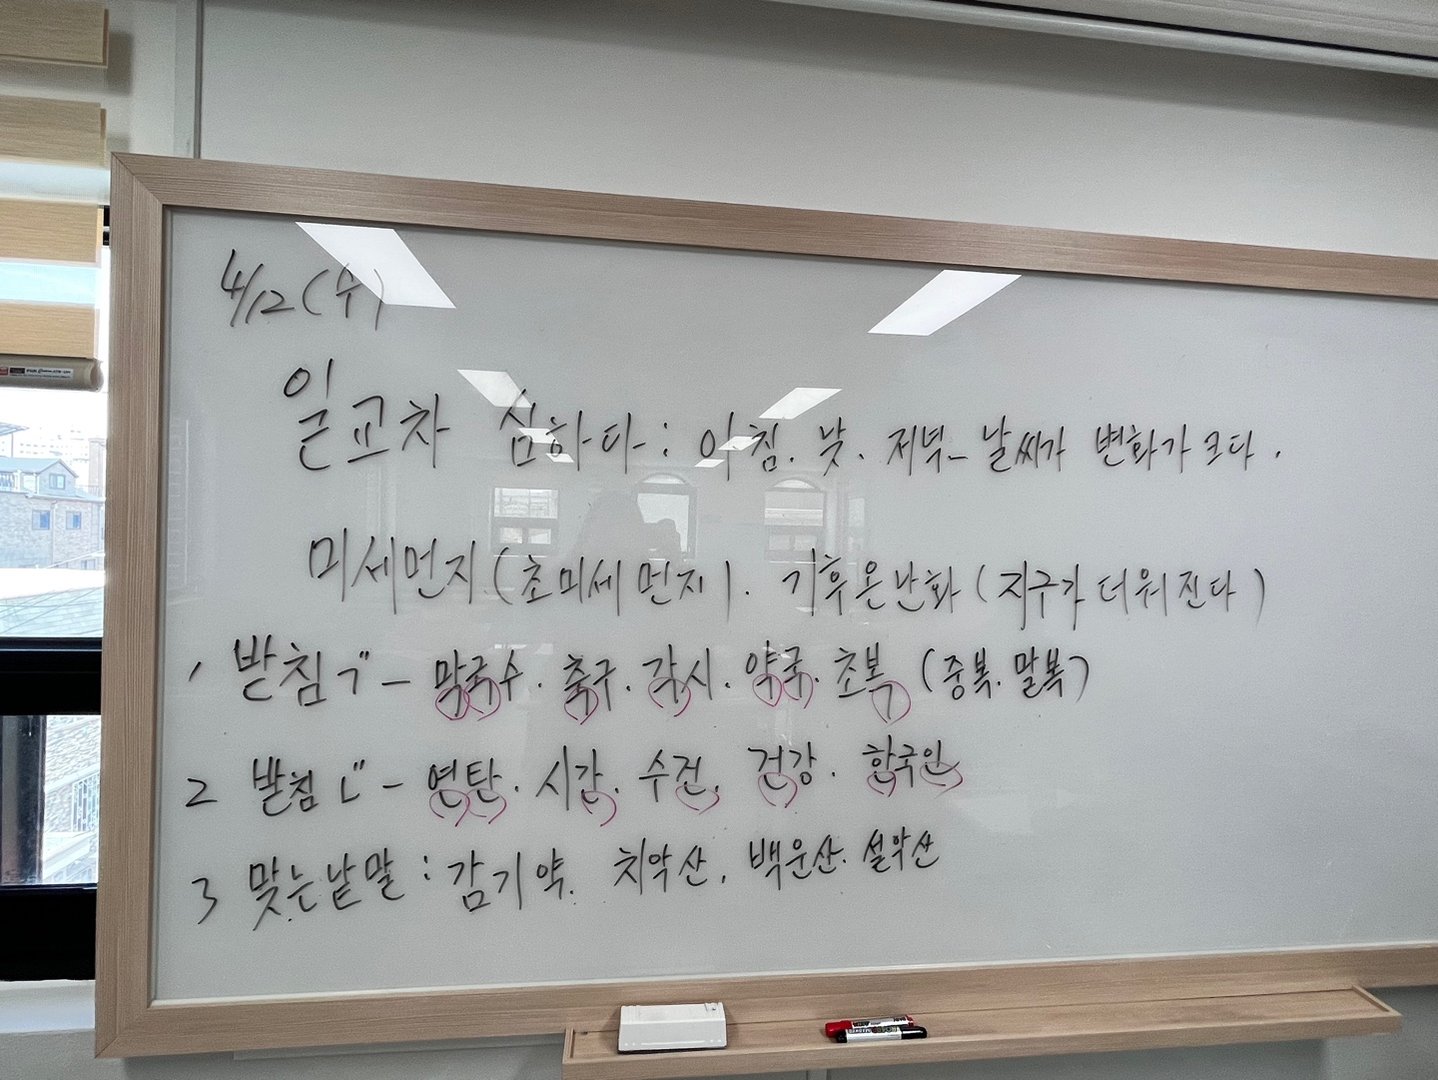 4/12 (수)
일교차 심하다 : 아침. 낮. 저녁 - 날씨가 변화가 크다.
미세먼지 (초미세먼지). 기후온난화 (지구가 더워진다)
1 받침 ㄱ" - 막국수. 축구. 각시. 약국. 초복 (중복. 말복)
2 받침 ㄴ" - 연탄. 시간. 수건. 건강. 한국인
3 맞는낱말 : 감기약. 치악산. 백운산. 설악산